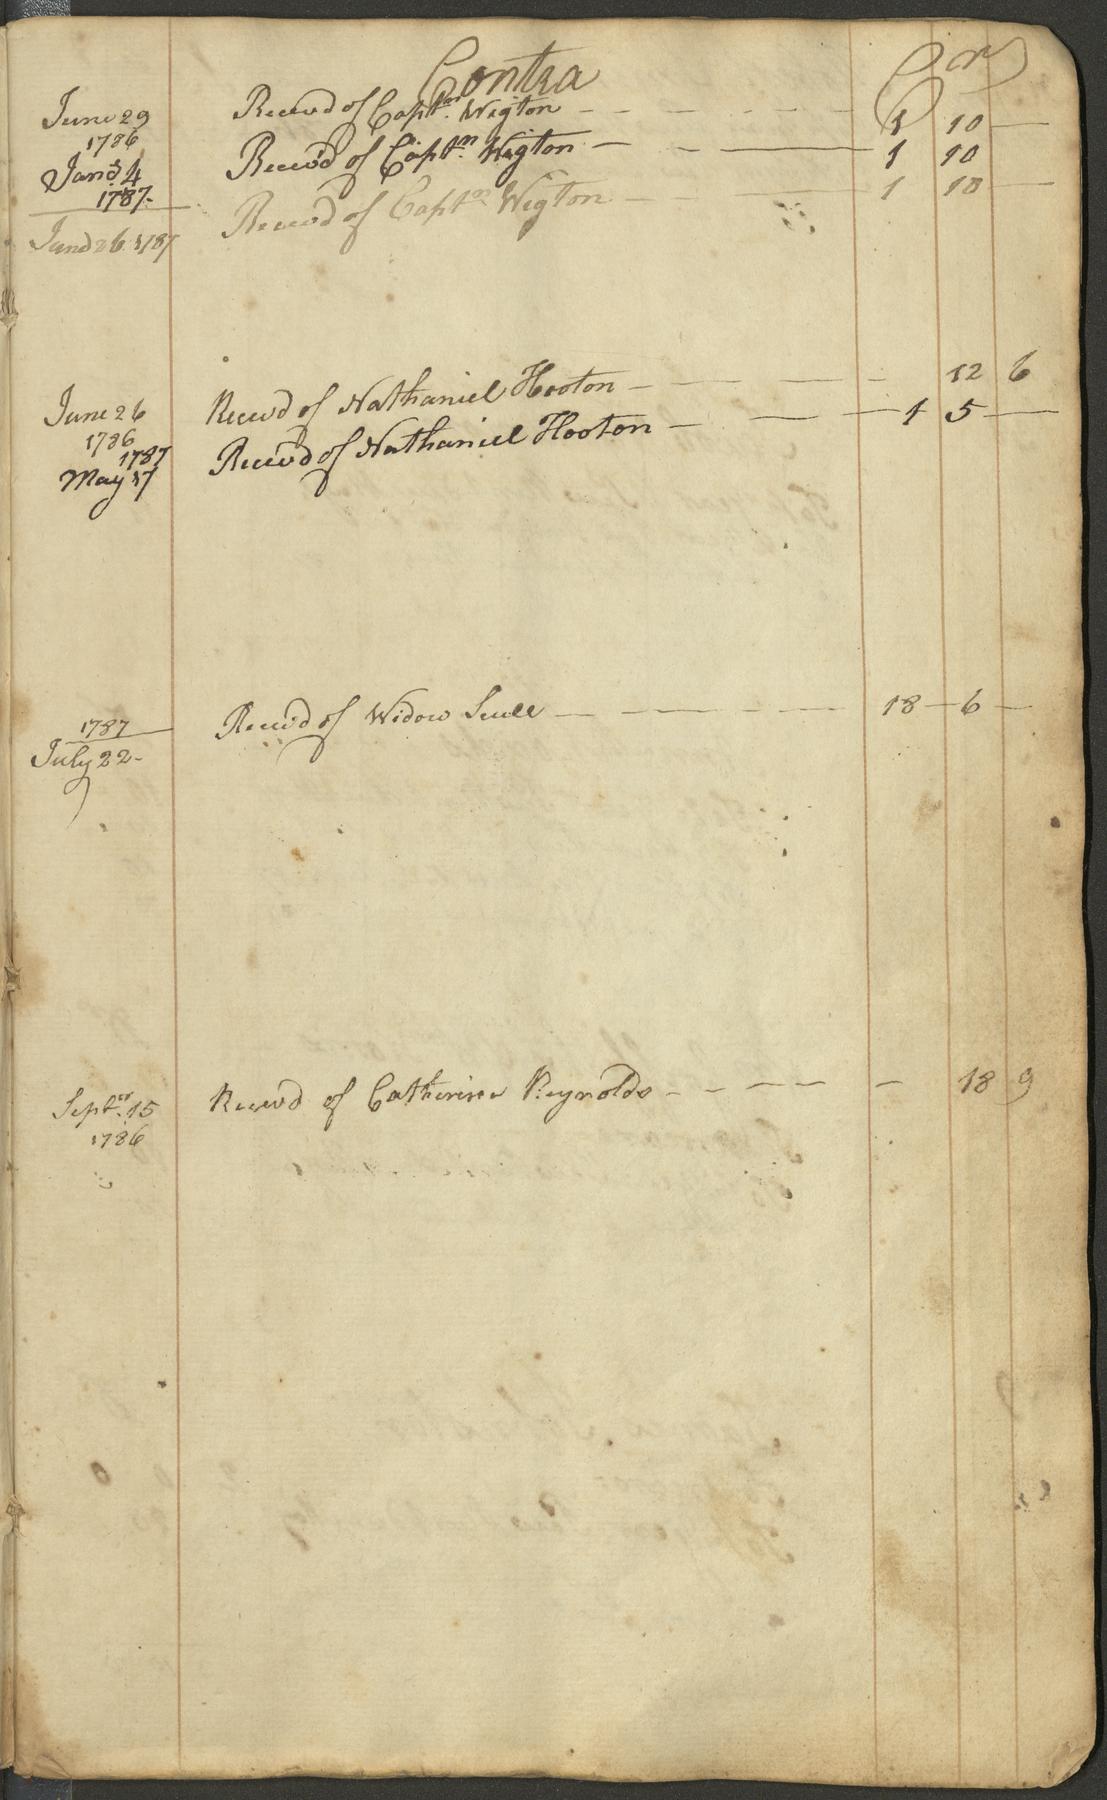 Contra Cr
June 29 Receivd of Captn. Wigton 1 10
1786
Jan 4 Receivd of Captn. Wigton 1 10
1787-
June 26 1787 Receivd of Captn Wigton 1 10
June 26 Receivd of Nathaniel Hooton 12 6
1786
1787 Receivd of Nathaniel Hooton 1 5
May 17
1787 Receivd of Widow Scull 18 6
July 22-
Septer. 15 Receivd of Catherine Reynolds 18 9
1786